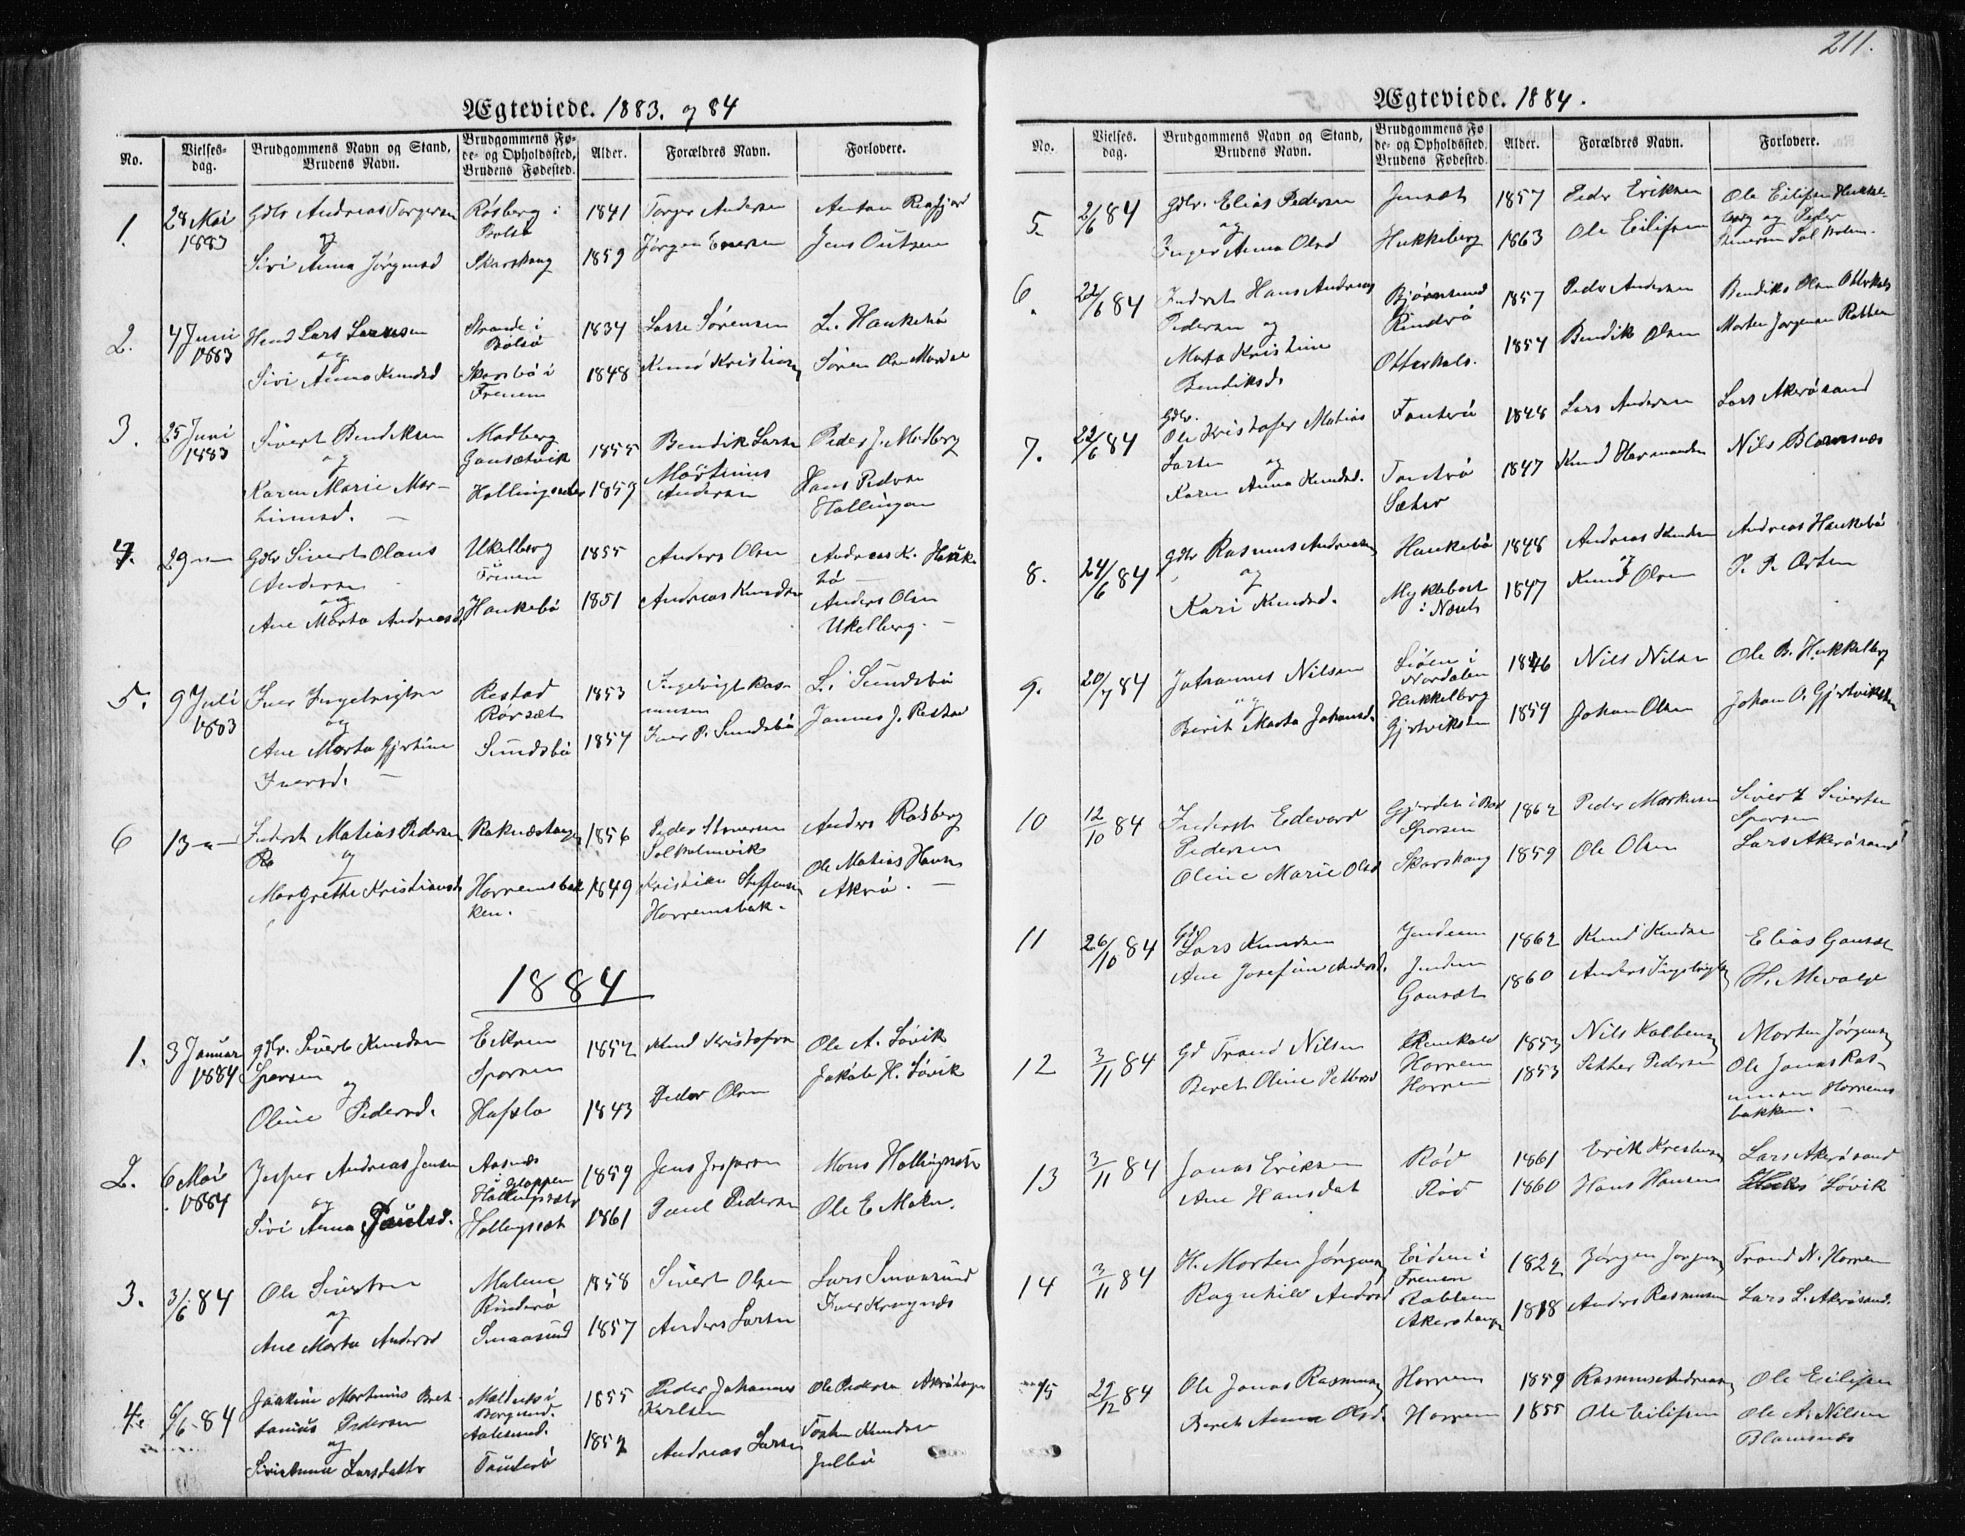 211.
Ægteviede. 1883. og 84
No.
Vielses-
dag.
Brudgommens Navn og Stand,
Brudens Navn.
Brudgommens Fø-
de- og Opholdssted,
Brudens Fødested.
Alder.
Forældres Navn.
Forlovere.
1.
28 Mai
1883
Gdbr Andreas Torgersen
og
Sivi Anna Jørgensd
Røsberg i
Bolsø
Skarshaug
1841
1859
Torger Andersen
Jørgen Enersen
Anton
Jens
2.
4 Juni
1883
Lars Larsen
og
Sivi Anna Knudsd
Strande i
Bolsø
Skarsbø i
Frenen
1834
1848
Lasse Sørensen
Knud Kristians
L. Haukebø
Søren Olsen
3.
25 Juni
1883
Sivert Bendiksen
og
Karen Marie Mar-
tinusd.
Modberg
Gansætvik
Hollingsæter
1855
1859
Bendik Larsen
Martinus
Andersen
Peder J. Modberg
Hans Pedersen
Hollingen
4.
29 -"-
Gdbr Sivert Olaus
Andersen
og
Ane Marta Andreasd
Ukelberg
Frenen
Haukebø
1855
1851
Anders Olsen
Andreas Knudsen
Andreas K. Hauke-
bø
Anders Olsen
Ukelberg.
5.
9 Juli
1883
Iver Ingebrigtsen
og
Ane Marta Gjertine
Iversd.
Restad
Rørsæt
Sundsbø
1853
1857
Ingebrigt Ras-
mussen
Iver P. Sundsbø
L. Sundsbø
Jannes J. Restad
6
13 -"-
Inderst Matias Pedersen
og
Margrethe Kristiansd
Raknestangen
Harremsbak
ken.
1856
1849
Peder
Solholmvik
Kristian Steffensen
Harremsbak.
Anders Rasberg
Ole Matias Hansen
Akrø.
1884
1.
3 Januar
1884
gdbr. Sivert Knudsen
Sporsen
og
Oline Pedersd.
Eikrem
Sporsen
Hafsla
1852
1843
Knud Kristofersen
Peder Olsen
Ole A. Løvik
Jakob H. Løvik
2.
6 Mai
1884
Jesper Andreas Jensen
og
Sivi Anna Paulsd.
Aasnes
i Gloppen
Hollingsæter
Hollingsæt
1859
1861
Jens Jespersen
Paul Pedersen
Mons Hollingsæter
Ole E Malen.
3.
3/6 84
Ole Sivertsen
og
Ane Marta Andersd
Malene
Rinderø
Smaasund
1858
1857
Sivert Olsen
Anders Larsen
Lars Smaasund
Iver
4.
6/6 84
Joakim Martinus Bert-
Pedersen
og
Sivianna Larsdatter
i
Borgund.
Aalesund.
Tautrø
1855
1852
Peder Johannes
Karlsen
Andreas Larsen
Ole Pedersen
Knudsen
Julbø
Ægteviede. 1884.
No.
Vielses.
dag.
Brudgommens Navn og Stand,
Brudens Navn.
Brudgommens Fø
de- og Opholdssted,
Brudens Fødested.
Alder.
Forældres Navn.
Forlovere.
5.
2/6 84
Gdbr. Elias Pedersen
og
Inger Anna Olsd
Jensæt
Hukkelberg
1857
1863
Peder Eriksen
Ole Eilifsen
Ole Eilifsen Hukkel-
berg og Peder
Solholm.
6.
22/6 84
Inderst Hans Andreas
Pedersen og
Marta Kristine
Bendiksd.
Bjørnsund
Rinderø
Otterhals.
1857
1854
Peder Andersen
Bendik Olsen
Bendiks Olsen Otterhals
Morten Jørgensen Rabben
7.
22/6 84
Gdbr.
Ole Kristofer Matias
Larsen og
Karen Anna Knudsd.
Tautrø
Tautrø
Sæter
1848
1847
Lars Andersen
Knud Hermandsen
Lars Akerøsand
Nils Blomsnæs
8.
24/6 84
gdbr Rasmus Andreasen
og
Kari Knudsd.
Haukebø
Myklebost
i Næsset
1848
1847
Andreas Knudsen
og
Knud Olsen
Andreas Haukebø
P. P. Orten
9.
20/7 84
Johannes Nilsen
og
Berit Marta Johansd.
Liøen i
Nordalen
Hukkelberg
Gjertviksen
1846
1859
Nils Nilsen
Johan Olsen
Ole B. Hukkelberg
Johan O. Gjertviksen
10
12/10 84
Inderst Edevard
Pedersen
Oline Marie Olsd
Gjerdet i Bod
Sporsen
Skarshaug
1862
1859
Peder Markusen
Ole Olsen
Sivert Sivertsen
Sporsen
Lars Akerøsand
11
26/10 84
Gdb
Lars Knudsen
Ane Josefine Andersd.
Jendem
Jendem
Gansæt
1862
1860
Knud Knudsen
Anders Ingebrigtsen
Elias Gansæt
H. Mevolge
12
3/11 84
Gd Trand Nilsen
Beret Oline Pettersd
Harrem
Harrem
1853
1853
Nils Kolbens
Petter Pedersen
Morten Jørgensen
Ole Jonas Ras-
mussen Harrems
bakken.
13
3/11 84
Jonas Eriksen
Ane Hansdat
Rød
Rød
1861
1860
Erik Kristensen
Hans Hansen
Lars Akerøsand
Løvik
14
3/11 84
H. Morten Jørgensen
Ragnhild Andersd
Eidem i
Frenen
Rabben
Akershaugen
1822
1818
Jørgen Jørgensen
Anders Rasmussen
Trand N. Harrem
Lars L. Akerøsand.
15
29/12 84
Ole Jonas Rasmussen
Beret Anna Olsd.
Harrem
Harrem
1859
1855
Rasmus Andreasen
Ole Eilifsen
Ole Eilifsen
Ole A. Nilsen
Blomsnæs